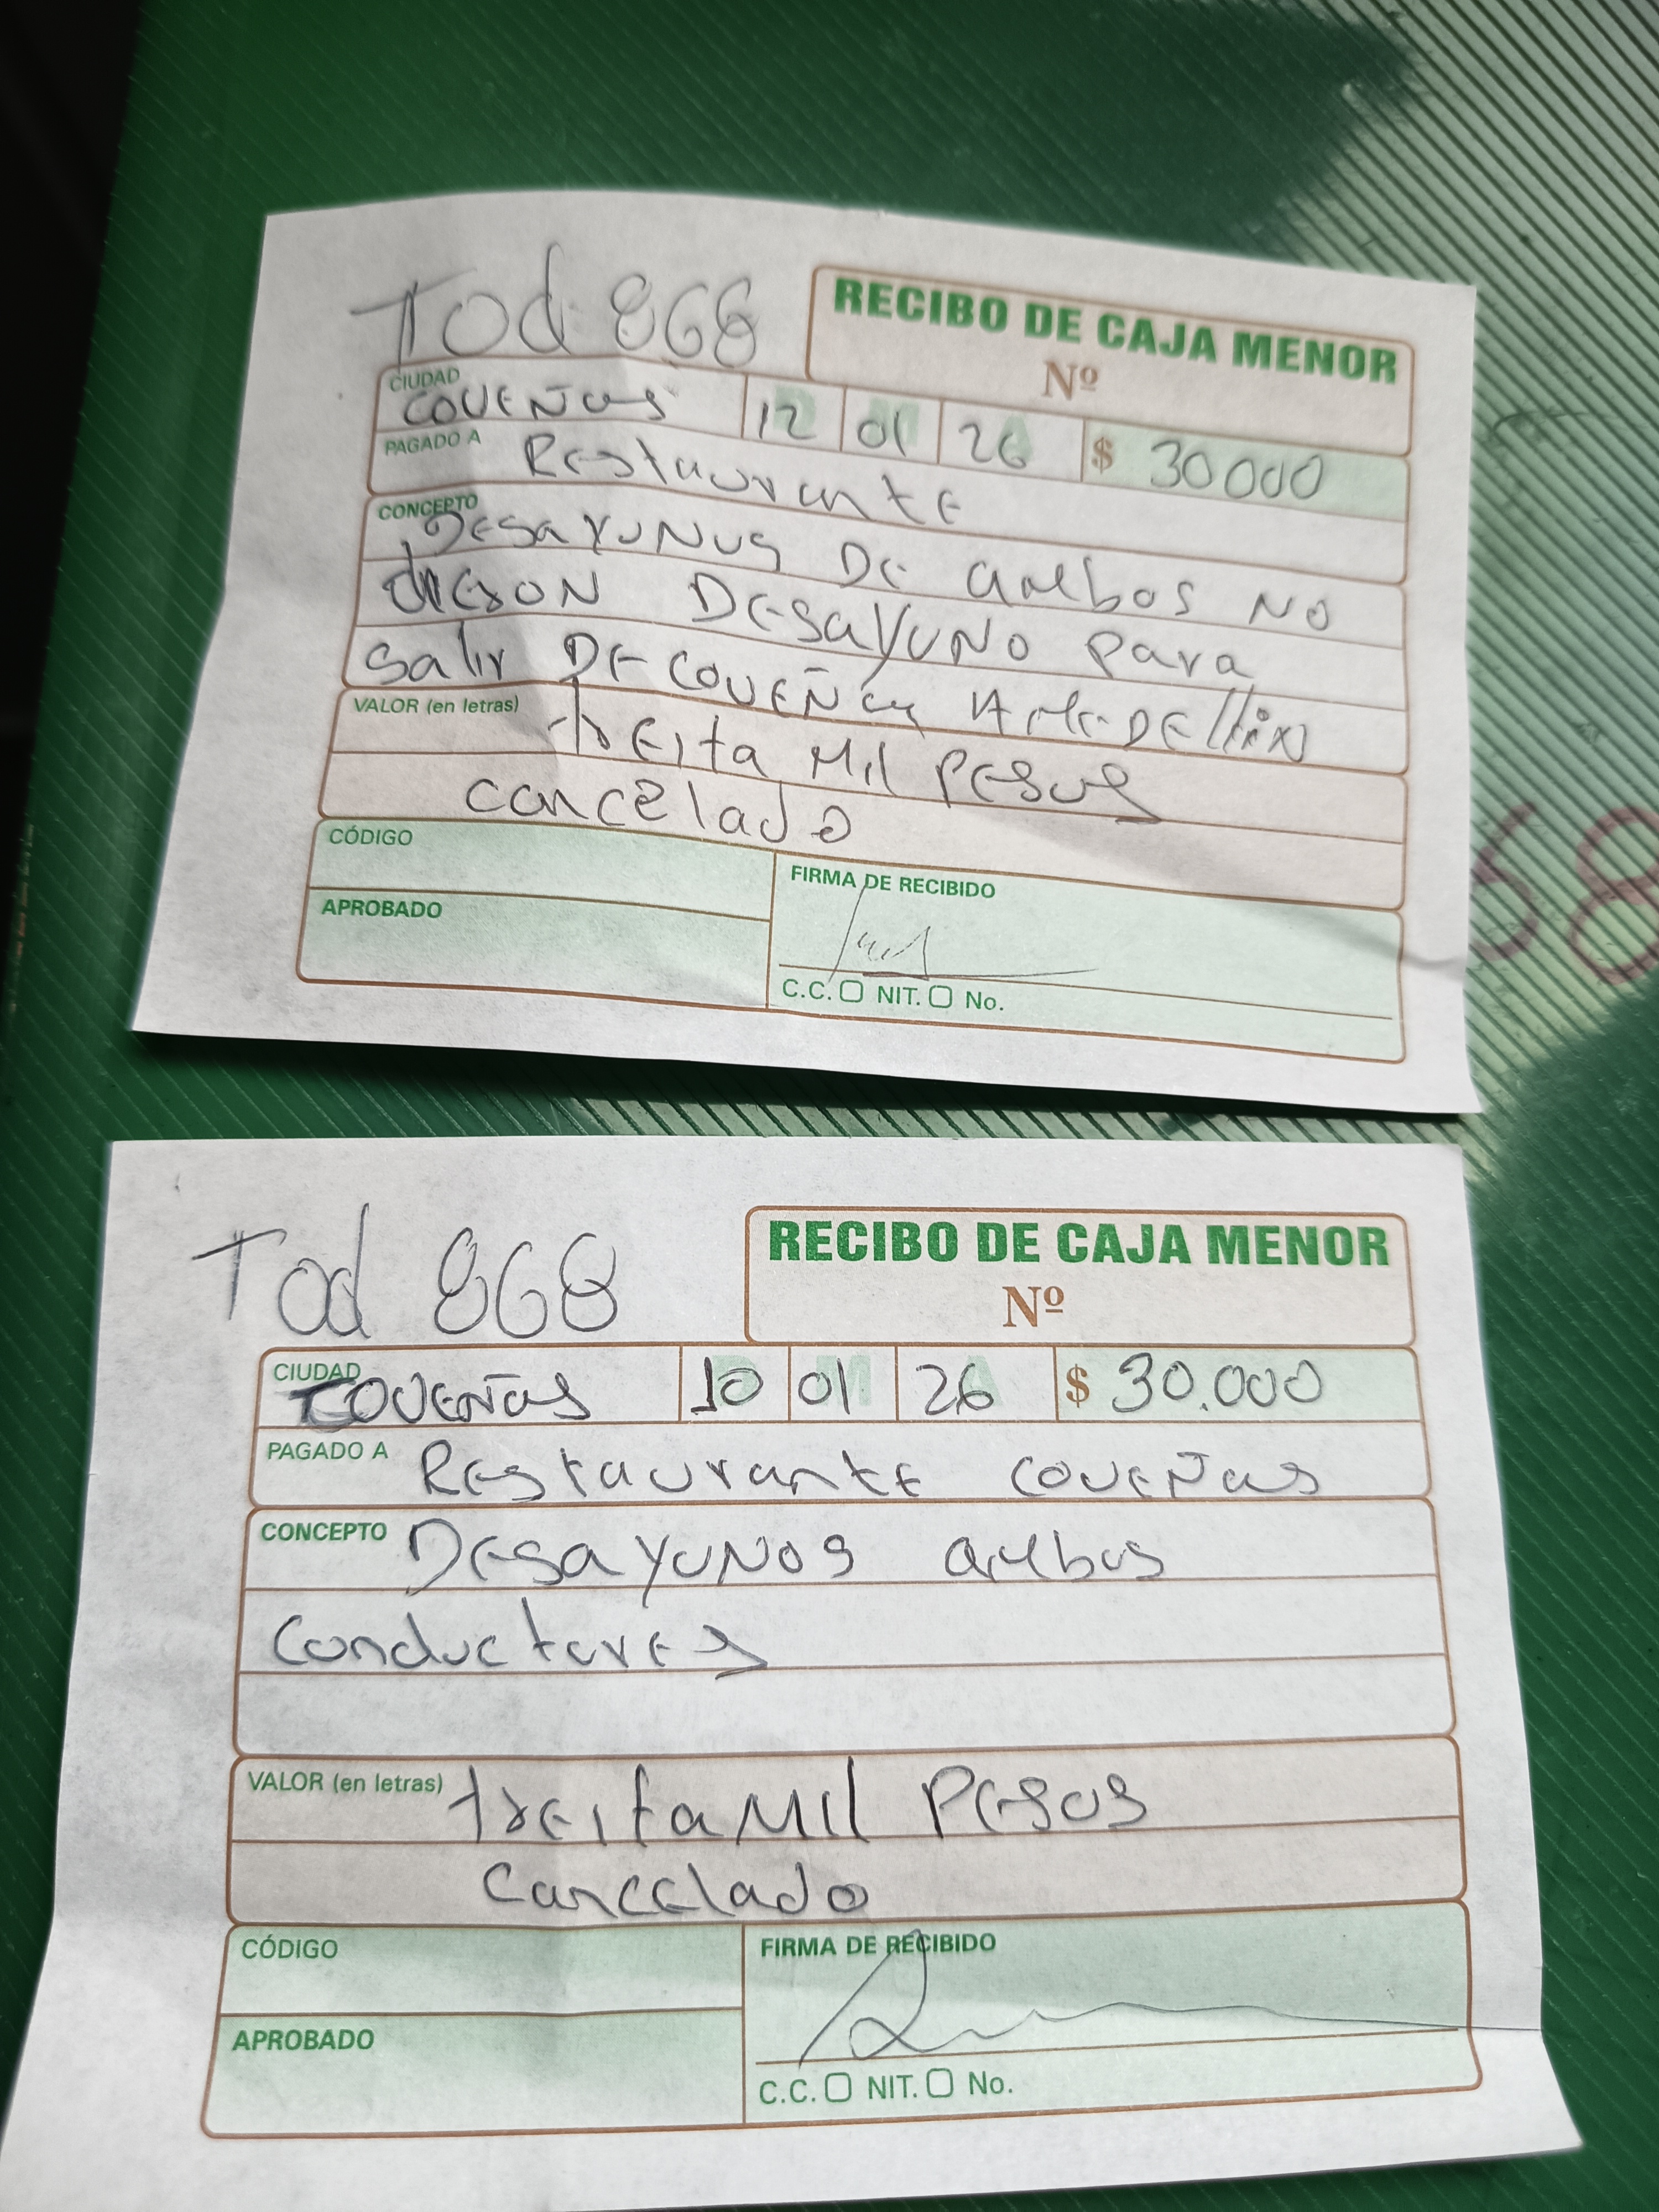 Tod 868
RECIBO DE CAJA MENOR
Nº
CIUDAD
COVEÑas 12 01 26 $ 30000
PAGADO A Restaurante
CONCEPTO
DESAYUNOS DE ambos NO
dieron DESAYUNO para
salir DE COVEÑas
VALOR (en letras) treita Mil Pesos
cancelado
CÓDIGO
FIRMA DE RECIBIDO
APROBADO
C.C. NIT. No.
68
Tod 868
RECIBO DE CAJA MENOR
Nº
CIUDAD
COVEÑas 10 01 26 $ 30.000
PAGADO A Restaurante COVEÑas
CONCEPTO DESAYUNOS ambos
Conductores
VALOR (en letras) treita Mil Pesos
Cancelado
CÓDIGO
FIRMA DE RECIBIDO
APROBADO
C.C. NIT. No.